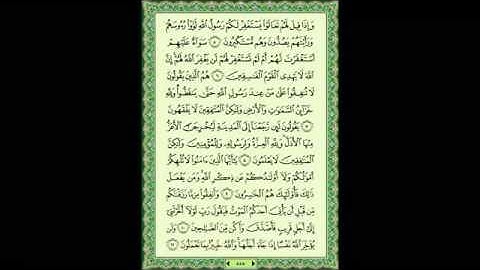 وَإِذَا قِيلَ لَهُمْ تَعَالَوْا يَسْتَغْفِرْ لَكُمْ رَسُولُ اللَّهِ لَوَّوْا رُءُوسَهُمْ
وَرَأَيْتَهُمْ يَصُدُّونَ وَهُم مُّسْتَكْبِرُونَ ٥ سَوَاءٌ عَلَيْهِمْ
أَسْتَغْفَرْتَ لَهُمْ أَمْ لَمْ تَسْتَغْفِرْ لَهُمْ لَن يَغْفِرَ اللَّهُ لَهُمْ إِنَّ
اللَّهَ لَا يَهْدِى الْقَوْمَ الْفَاسِقِينَ ٦ هُمُ الَّذِينَ يَقُولُونَ
لَا تُنفِقُوا عَلَىٰ مَنْ عِندَ رَسُولِ اللَّهِ حَتَّىٰ يَنفَضُّوا وَلِلَّهِ
خَزَائِنُ السَّمَاوَاتِ وَالْأَرْضِ وَلَٰكِنَّ الْمُنَافِقِينَ لَا يَفْقَهُونَ
٧ يَقُولُونَ لَئِن رَّجَعْنَا إِلَى الْمَدِينَةِ لَيُخْرِجَنَّ الْأَعَزُّ
مِنْهَا الْأَذَلَّ وَلِلَّهِ الْعِزَّةُ وَلِرَسُولِهِ وَلِلْمُؤْمِنِينَ وَلَٰكِنَّ
الْمُنَافِقِينَ لَا يَعْلَمُونَ ٨ يَا أَيُّهَا الَّذِينَ آمَنُوا لَا تُلْهِكُمْ
أَمْوَالُكُمْ وَلَا أَوْلَادُكُمْ عَن ذِكْرِ اللَّهِ وَمَن يَفْعَلْ
ذَٰلِكَ فَأُولَٰئِكَ هُمُ الْخَاسِرُونَ ٩ وَأَنفِقُوا مِن مَّا رَزَقْنَاكُم
مِّن قَبْلِ أَن يَأْتِىَ أَحَدَكُمُ الْمَوْتُ فَيَقُولَ رَبِّ لَوْلَا أَخَّرْتَنِى
إِلَىٰ أَجَلٍ قَرِيبٍ فَأَصَّدَّقَ وَأَكُن مِّنَ الصَّالِحِينَ ١٠ وَلَن
يُؤَخِّرَ اللَّهُ نَفْسًا إِذَا جَاءَ أَجَلُهَا وَاللَّهُ خَبِيرٌ بِمَا تَعْمَلُونَ ١١
٥٥٥